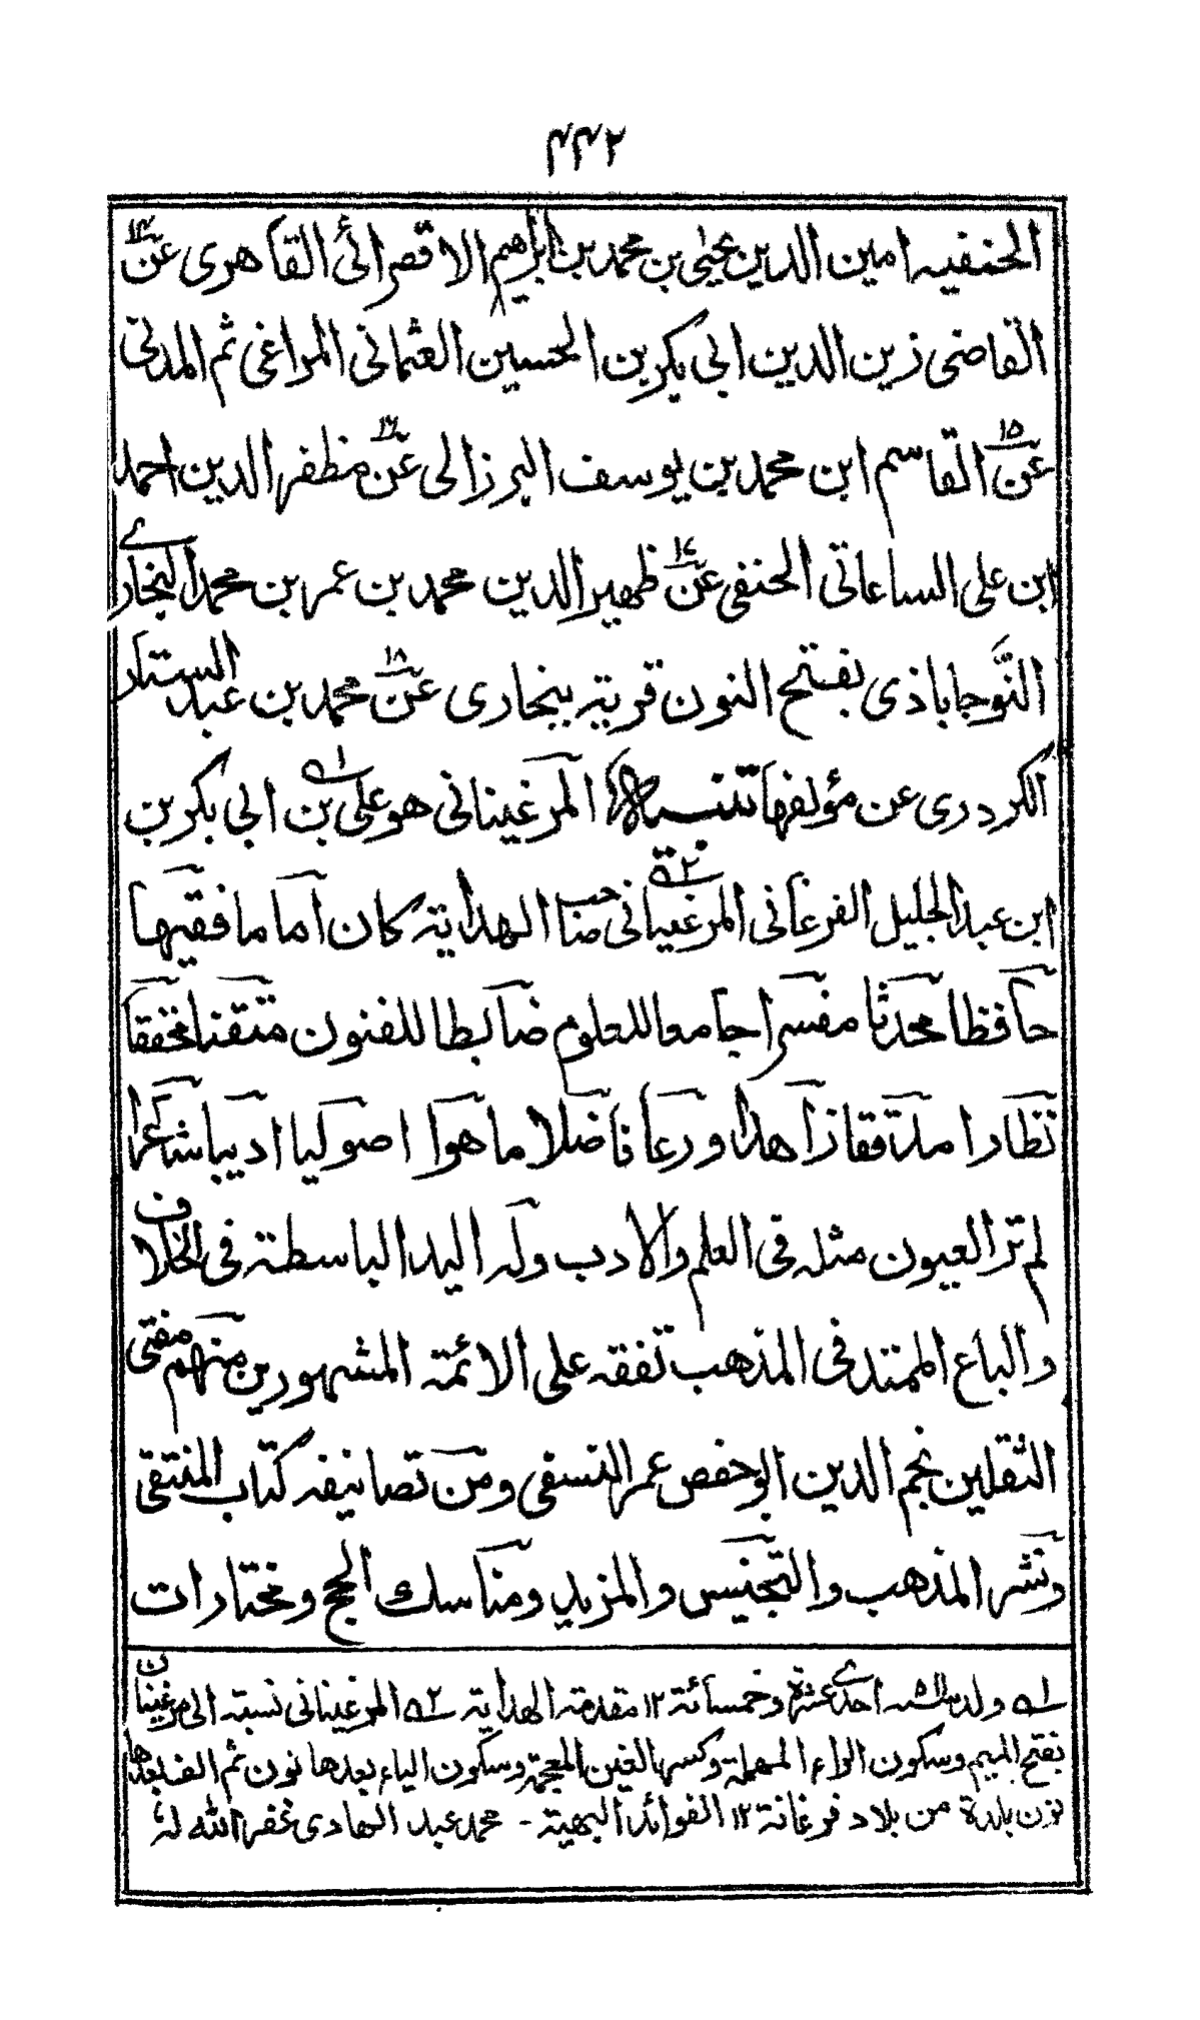 ۴۴۲
الحنفیه امین الدین یحیٰی بن محمد بن ابراهیم الاقصرائی القاهری عن۱۴
القاضی زین الدین ابی بکر بن الحسین العثمانی المراغی ثم المدنی
عن۱۵ القاسم ابن محمد بن یوسف البرزالی عن۱۶ مظفر الدین احمد
ابن علی الساعاتی الحنفی عن۱۷ ظهیر الدین محمد بن عمر بن محمد البخاری
النَّوجاباذی بفتح النون قریة ببخاری عن۱۸ محمد بن عبد الستار
الکردری عن مؤلفها تنبیه المرغینانی هو علی۱ بن ابی بکر بن
ابن عبد الجلیل الفرغانی المرغینانی۲ صاحب الهدایة کان اماما فقیها
حافظا محدثا مفسرا جامعا للعلوم ضابطا للفنون متقنا محققا
نظارا مدققا زاهدا ورعا فاضلا ماهرا اصولیا ادیبا شاعرا
لم تر العیون مثله فی العلم والادب وله الید الباسطة فی الخلاف
والباع الممتد فی المذهب تفقه علی الائمة المشهورین منهم مفتی
الثقلین نجم الدین ابو حفص عمر النسفی ومن تصانیفه کتاب المنتقی
ونشر المذهب والتجنیس والمزید ومناسک الحج ومختارات
۱ ولد سنة ۵۱۱ احدی عشرة وخمسمائة ۱۲ مقدمة الهدایة ۲ المرغینانی نسبة الی مرغینان
بفتح المیم وسکون الراء المهملة وکسر الغین المعجمة وسکون الیاء بعدها نون ثم الف بعدها
نون بلدة من بلاد فرغانة ۱۲ الفوائد البهیة - محمد عبد الهادی غفر الله له